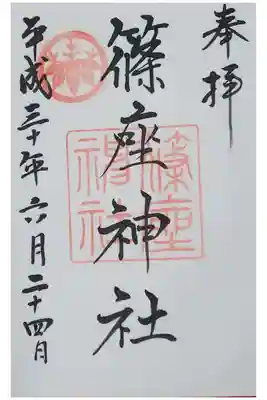 奉拝
篠座神社
平成三十年六月二十四日
篠座
神社